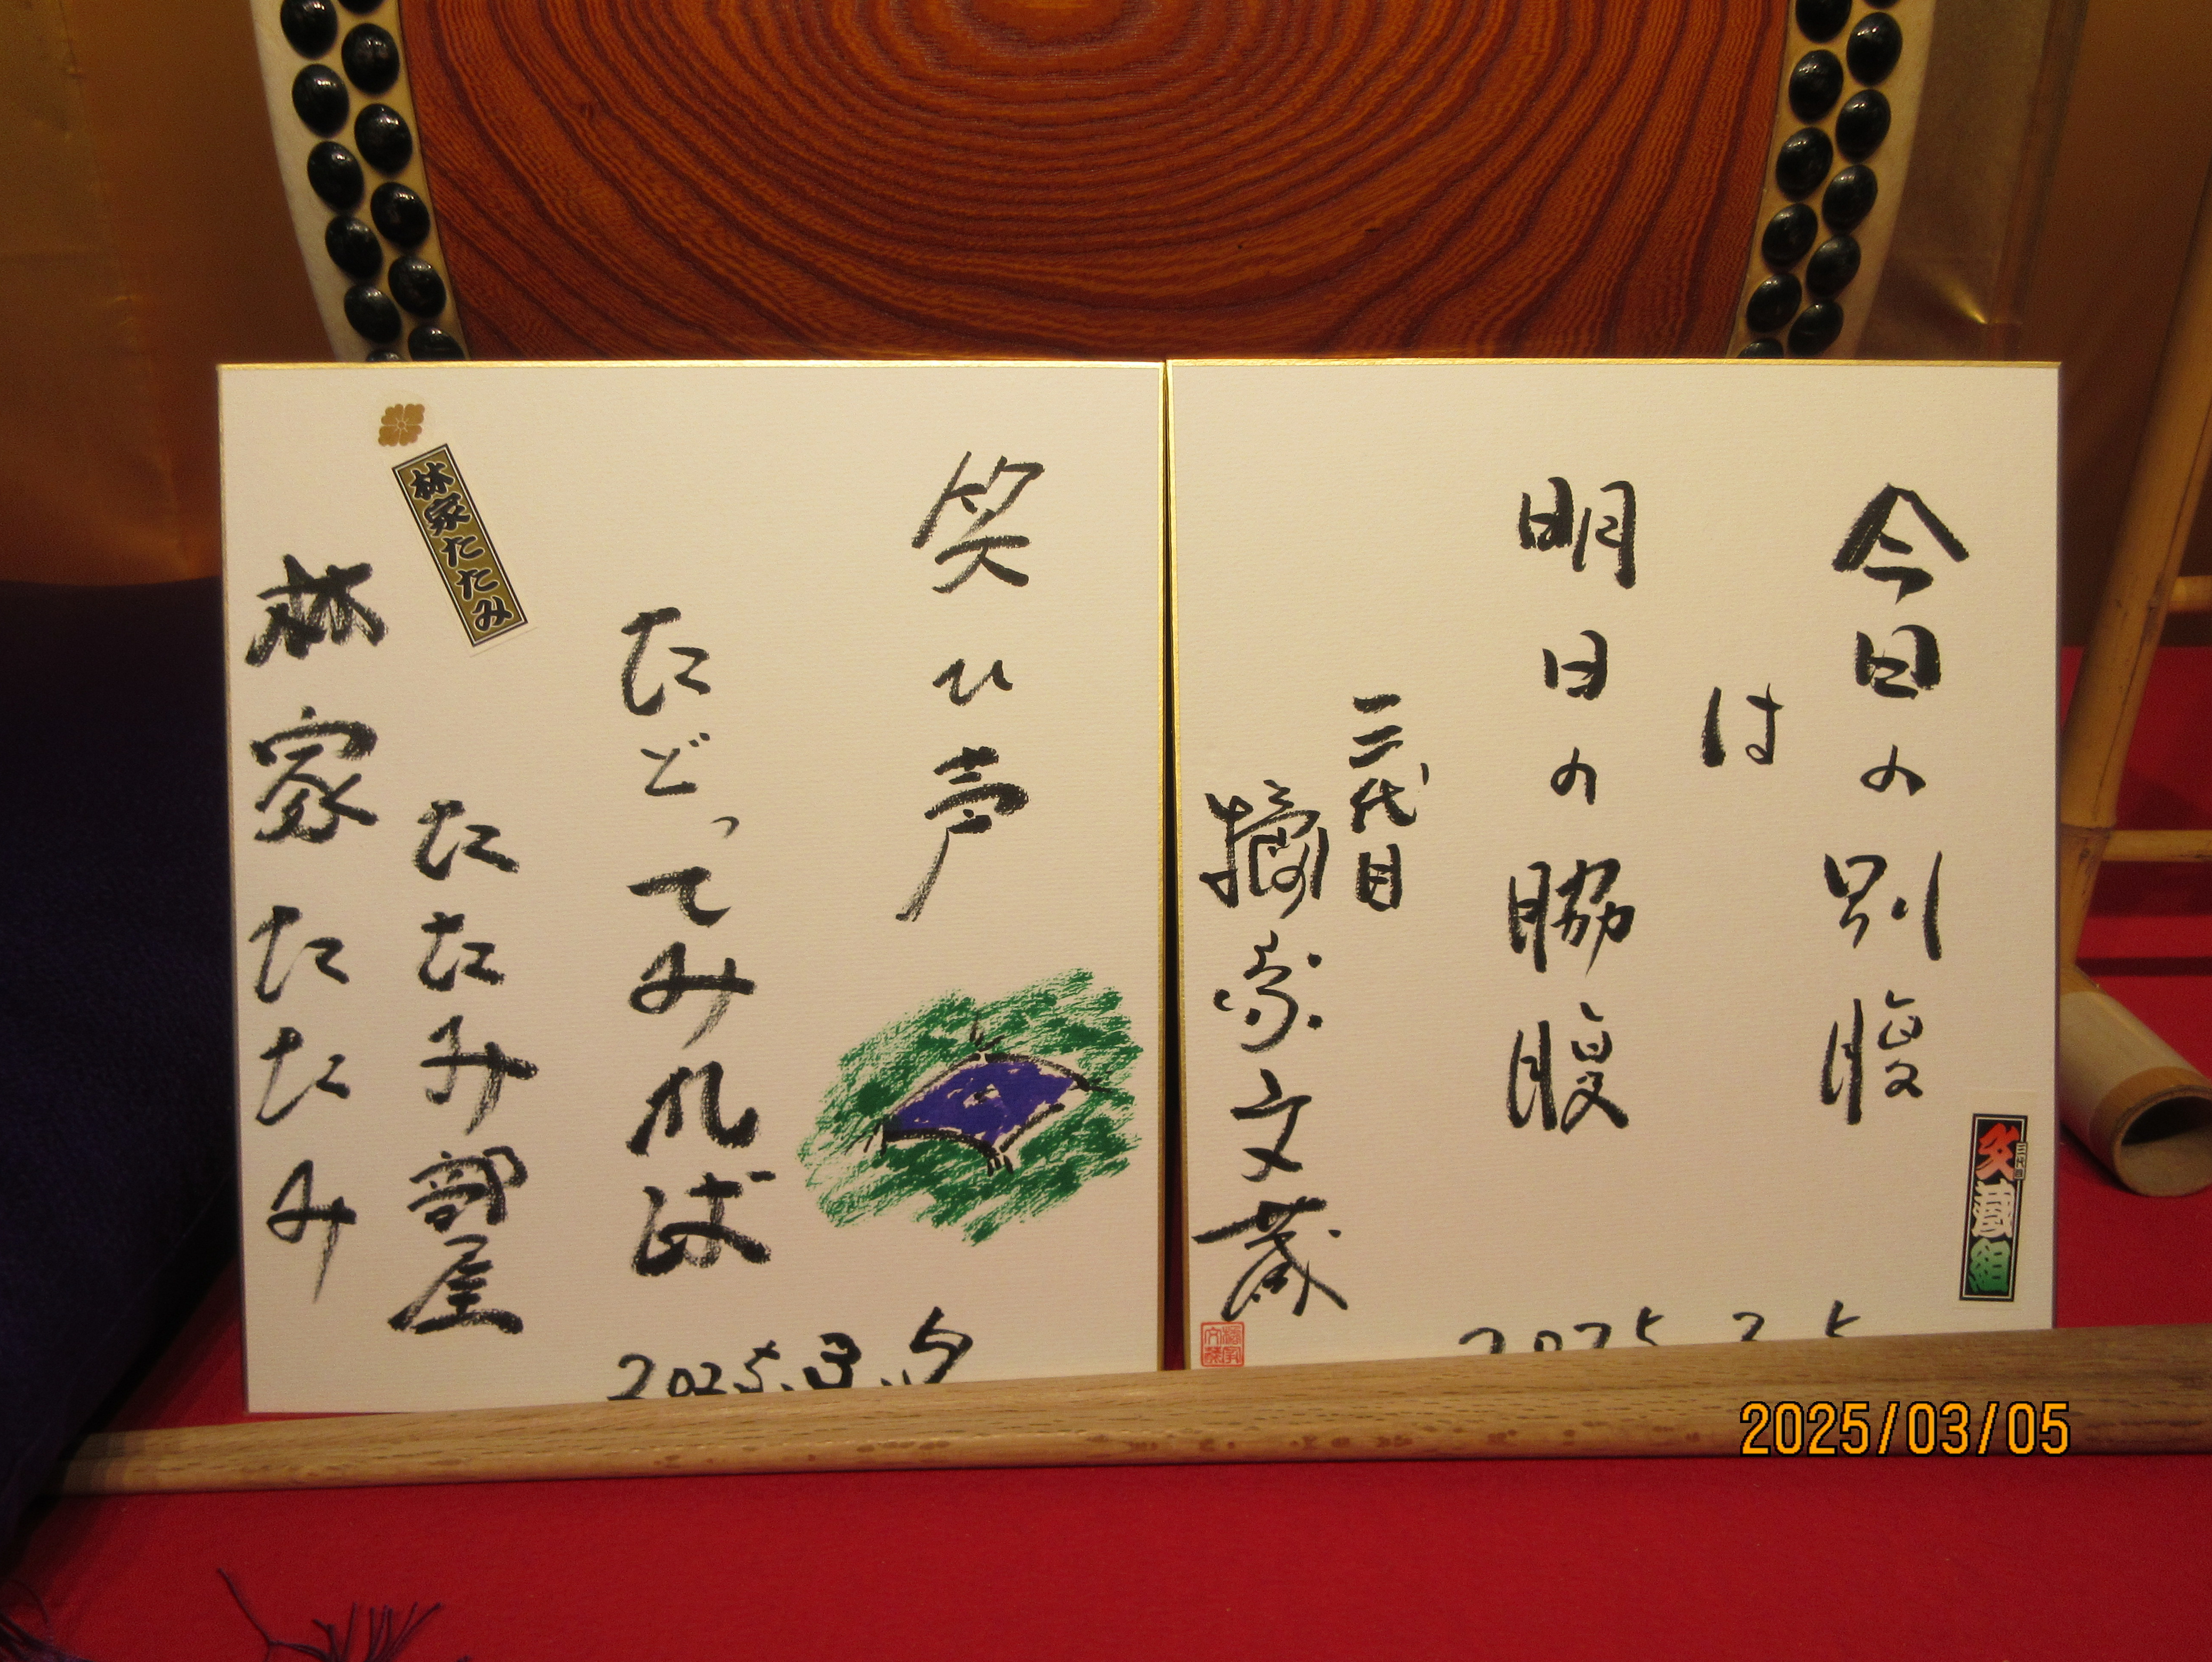 今日の別腹
は
明日の脇腹
三代目
橘家文蔵
三代目
文蔵組
2025 3 5
笑ひ声
たどってみれば
たたみ部屋
林家たたみ
林家たたみ
2025.3.5
2025/03/05